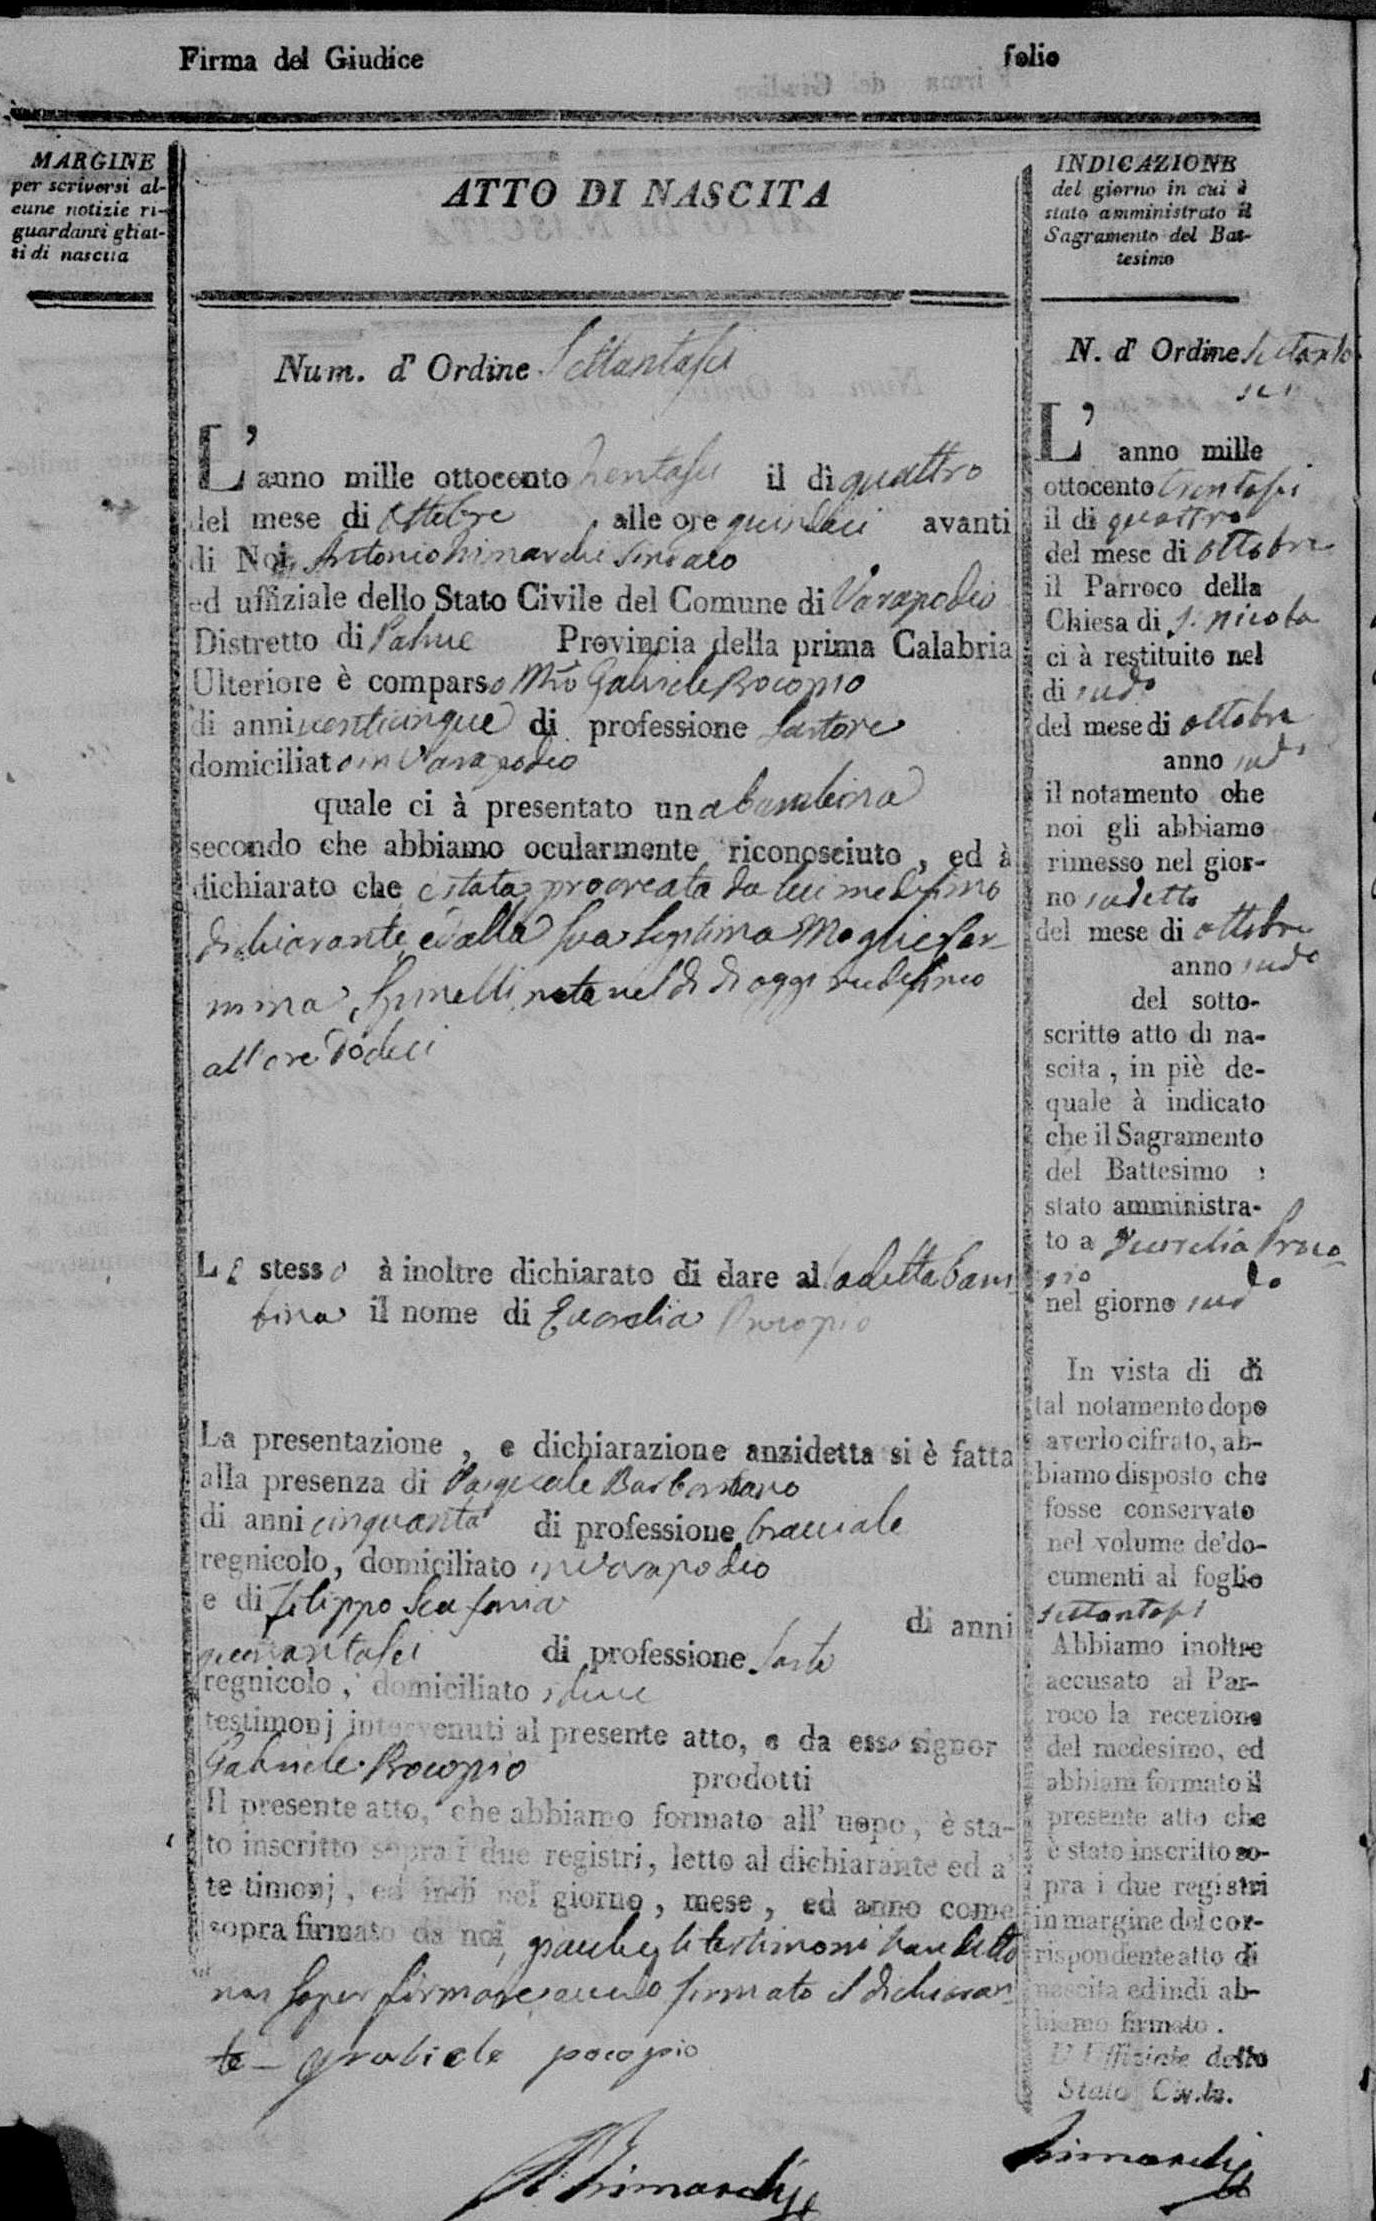 Firma del Giudice
folio
MARGINE
per scriversi al-
cune notizie ri-
guardanti gli at-
ti di nascita
ATTO DI NASCITA
Num. d' Ordine Settantasei
L'anno mille ottocento trentasei il dì quattro
del mese di Ottobre alle ore quindeci avanti
di Noi Antonio sindaco
ed uffiziale dello Stato Civile del Comune di Varapodio
Distretto di Palme Provincia della prima Calabria
Ulteriore è comparso Mro Gabriele Procopio
di anni venticinque di professione Sartore
domiciliato in Varapodio
quale ci à presentato una bambina
secondo che abbiamo ocularmente riconosciuto, ed à
dichiarato che è stata procreata da lui medesimo
dichiarante, e dalla sua legitima Moglie Car-
mina Spinelli nata nel dì di oggi medesimo
all'ore dodeci
Lo stesso à inoltre dichiarato di dare alla detta bam-
bina il nome di Procopio
La presentazione, e dichiarazione anzidetta si è fatta
alla presenza di Pasquale Barbontano
di anni cinquanta di professione bracciale
regnicolo, domiciliato in Varapodio
e di Filippo di anni
quarantasei di professione Sarto
regnicolo, domiciliato
testimonj intervenuti al presente atto, e da esso signor
Gabriele Procopio prodotti
Il presente atto, che abbiamo formato all' uopo, è sta-
to inscritto sopra i due registri, letto al dichiarante ed a'
te timonj, ed indi nel giorno, mese, ed anno come
sopra firmato da noi, giacche gli testimoni han detto
non saper firmare, avendo firmato il dichiaran
te - grabiele pocopio
INDICAZIONE
del giorno in cui è
stato amministrato il
Sagramento del Bat-
tesimo
N. d' Ordine Settanta
sei
L' anno mille
ottocento trentasei
il di quattro
del mese di Ottobre
il Parroco della
Chiesa di S. Nicola
ci à restituito nel
di sudo
del mese di ottobre
anno sudo
il notamento che
noi gli abbiamo
rimesso nel gior-
no sudetto
del mese di ottobre
anno sudo
del sotto-
scritto atto di na-
scita, in piè de-
quale à indicato
che il Sagramento
del Battesimo :
stato amministra-
to a Proco
pio
nel giorno sudo
In vista di di
tal notamento dopo
averlo cifrato, ab-
biamo disposto che
fosse conservato
nel volume de'do-
cumenti al foglio
settantasei
Abbiamo inoltre
accusato al Par-
roco la recezione
del medesimo, ed
abbiam formato il
presente atto che
è stato inscritto so-
pra i due registri
in margine del cor-
rispondente atto di
nascita ed indi ab-
biamo firmato.
L'Uffiziale dello
Stato Civ.le.